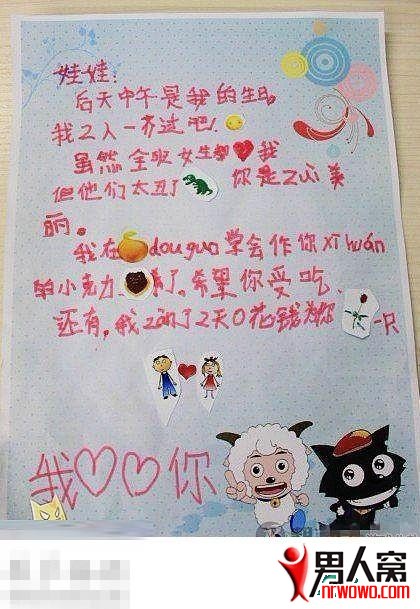 娃娃：
后天中午是我的生日
我2人一齐过吧！
虽然全班女生都❤我
但他们太丑了 你是Zuì美
丽。
我在 douguo学会作你xǐ huān
的小克力 了，希望你受吃、
还有，我zǎn了2天0花钱为你 一只
我♡♡你
男人窝
nrwowo.com